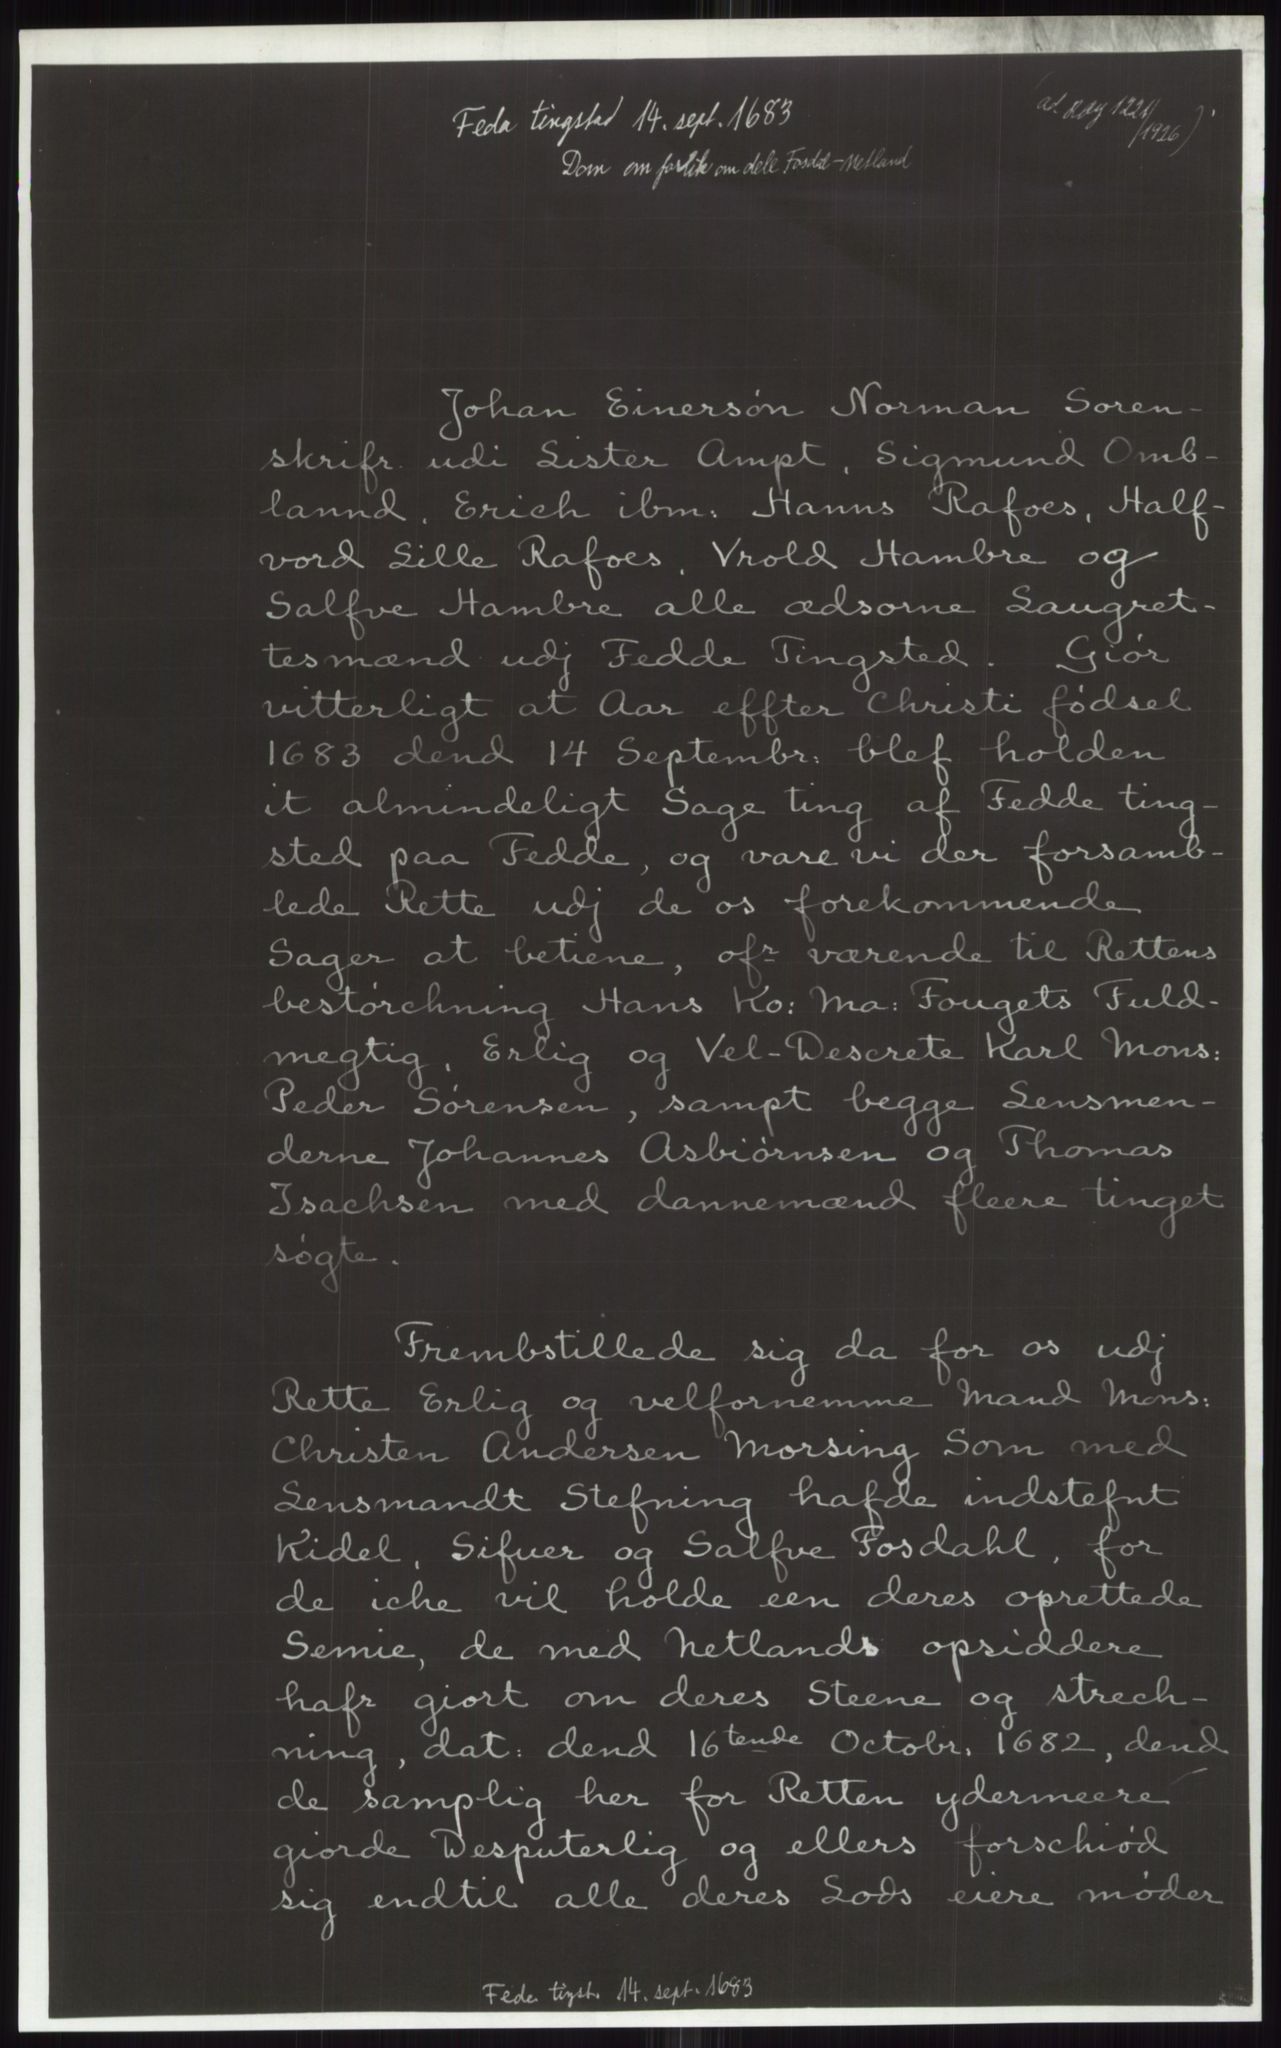 Feda tingstad 14. sept. 1683
(ad. RAy 1221/
/1926)
Dom om forlik om dele Fosdal-Netland
Johan Einersøn Norman Soren-
skrifr. udi Lister Ampt, Sigmund Omb-
lannd, Erich ibm: Hanns Rafoes, Half-
vord Lille Rafoes, Vrold Hambre og
Salfve Hambre alle ædsorne Laugret-
tesmænd udj Fedde Tingsted. Giør
vitterligt at Aar effter Christi fødsel
1683 dend 14 Septembr: blef holden
it almindeligt Sage ting af Fedde ting-
sted paa Fedde, og vare vi der forsamb-
lede Rette udj de os forekommende
Sager at betiene, ofr værende til Rettens
bestørchning Hans Ko: Ma: Fougets Fuld-
megtig, Erlig og Vel-Descrete Karl Mons:
Peder Sørensen, sampt begge Lensmen-
derne Johannes Asbiørnsen og Thomas
Isachsen med dannemænd fleere tinget
søgte.
Frembstillede sig da for os udj
Rette Erlig og velfornemme Mand Mons:
Christen Andersen Morsing Som med
Lensmandt Stefning hafde indstefnt
Kidel, Sifuer og Salfve Fosdahl, for
de iche vil holde een deres oprettede
Semie, de med Netlands opsiddere
hafr giort om deres Steene og strech-
ning, dat: dend 16tende Octobr. 1682, dend
de samplig her for Retten ydermeere
giorde Desputerlig og ellers forschiød
sig endtil alle deres Lods eiere møder
Feda tingst. 14. sept. 1683